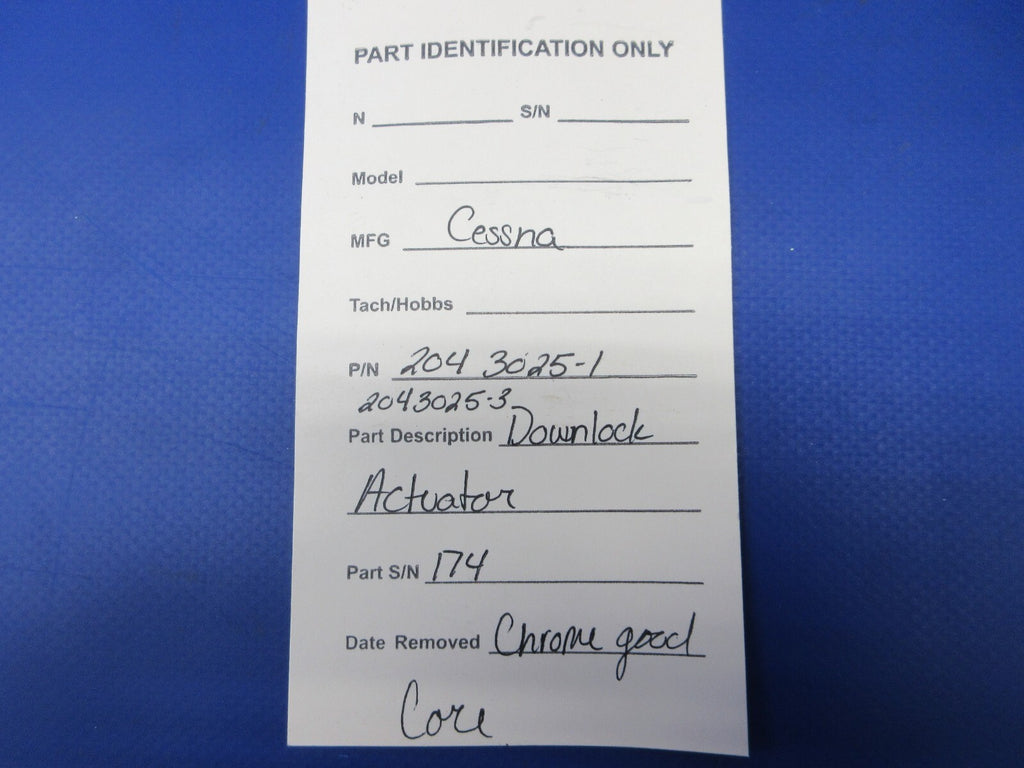 PART IDENTIFICATION ONLY
N S/N
Model
MFG Cessna
Tach/Hobbs
P/N 204 3025-1
2043025-3
Part Description Downlock
Actuator
Part S/N 174
Date Removed Chrome good
Core